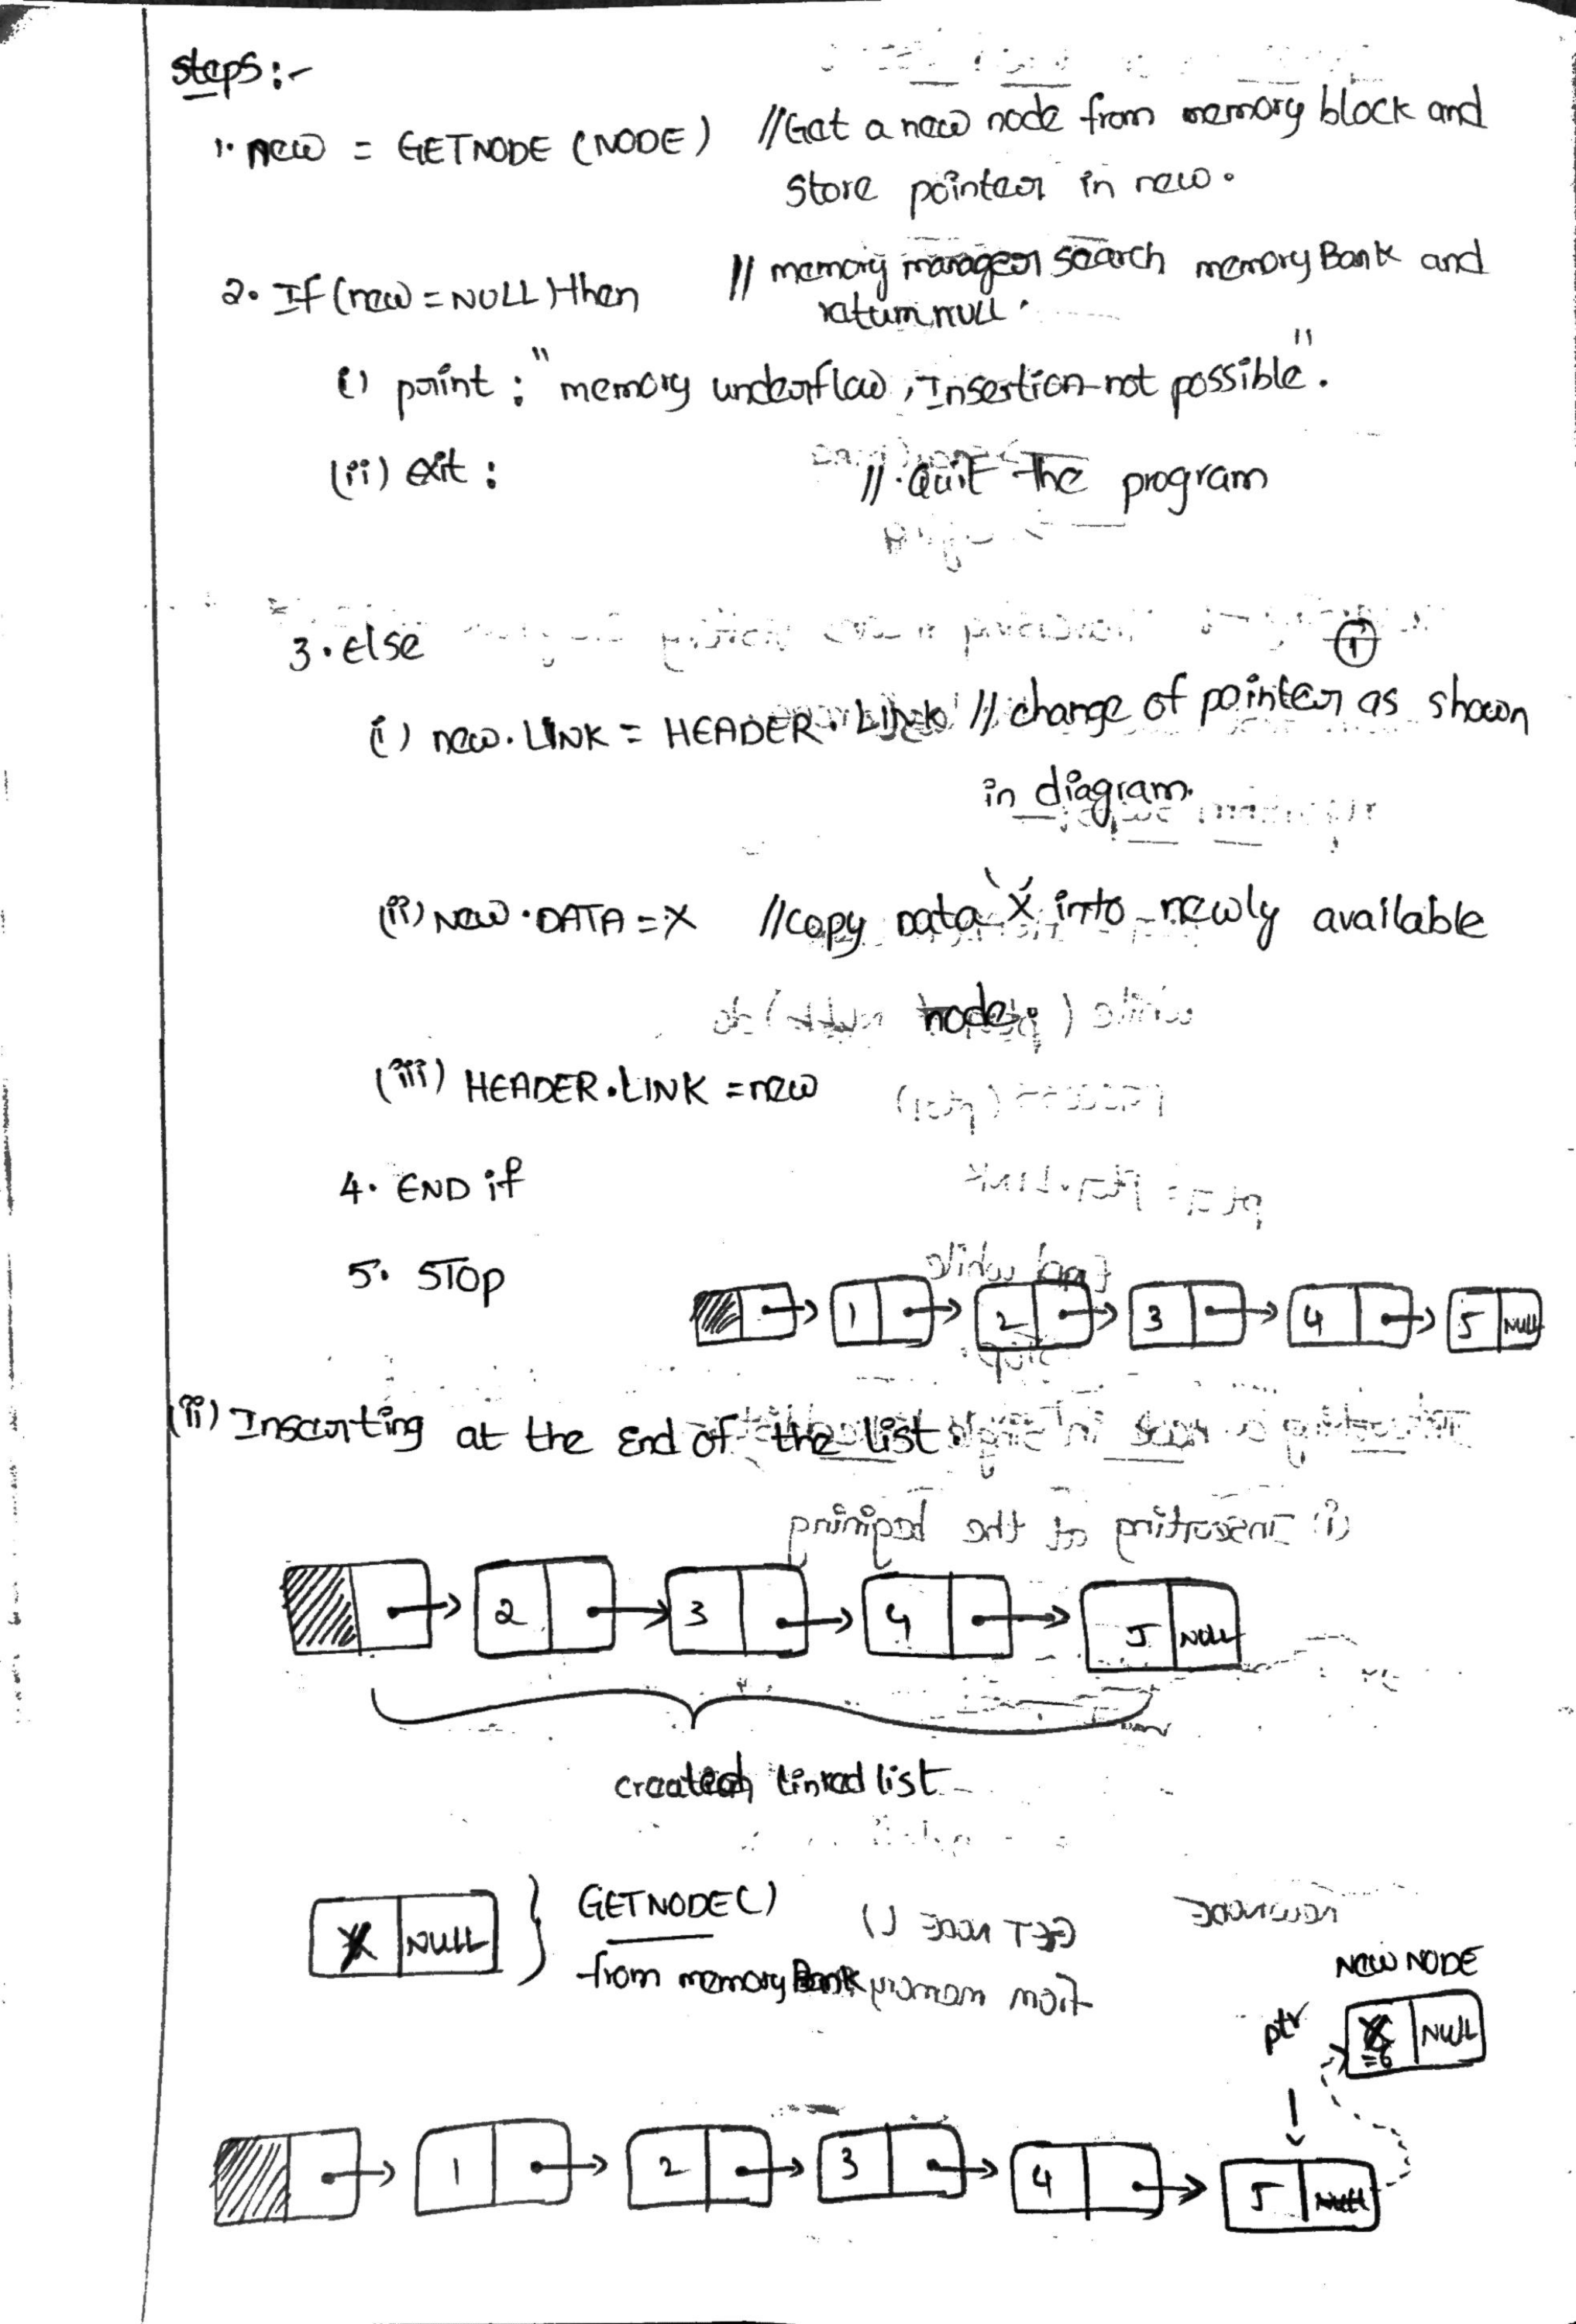 steps:-
1. new = GETNODE (NODE) //Get a new node from memory block and
store pointer in new.
2. If (new = NULL) then // memory manager search memory Bank and
return null.
(i) print : "memory underflow, Insertion-not possible".
(ii) exit : // Quit the program
3. else
(i) new. LINK = HEADER. LINK // change of pointer as shown
1
in diagram.
(ii) New. DATA = X //copy Data 'X' into newly available
node.
(iii) HEADER. LINK = new
4. END if
5. STOP
1 2 3 4 5 NULL
(ii) Inserting at the End of the list.
2 3 4 5 NULL
created linked list
X NULL GETNODE()
from memory Bank
NEW NODE
ptr X =6 NULL
1 2 3 4 5 NULL